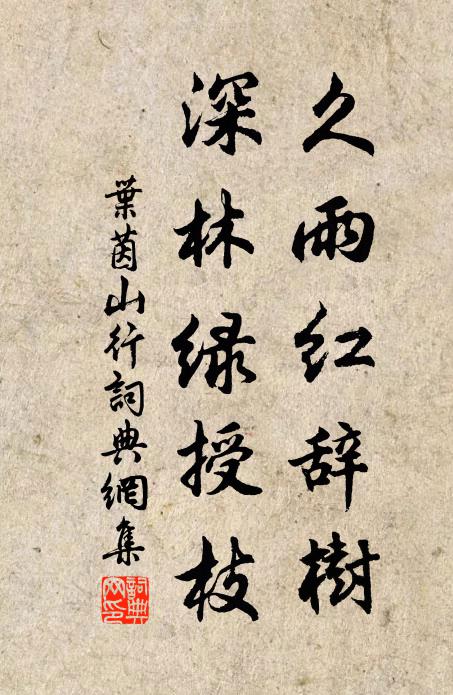 久雨红辞樹
深林緑授枝
葉茵山行詞典網集
詞典网印